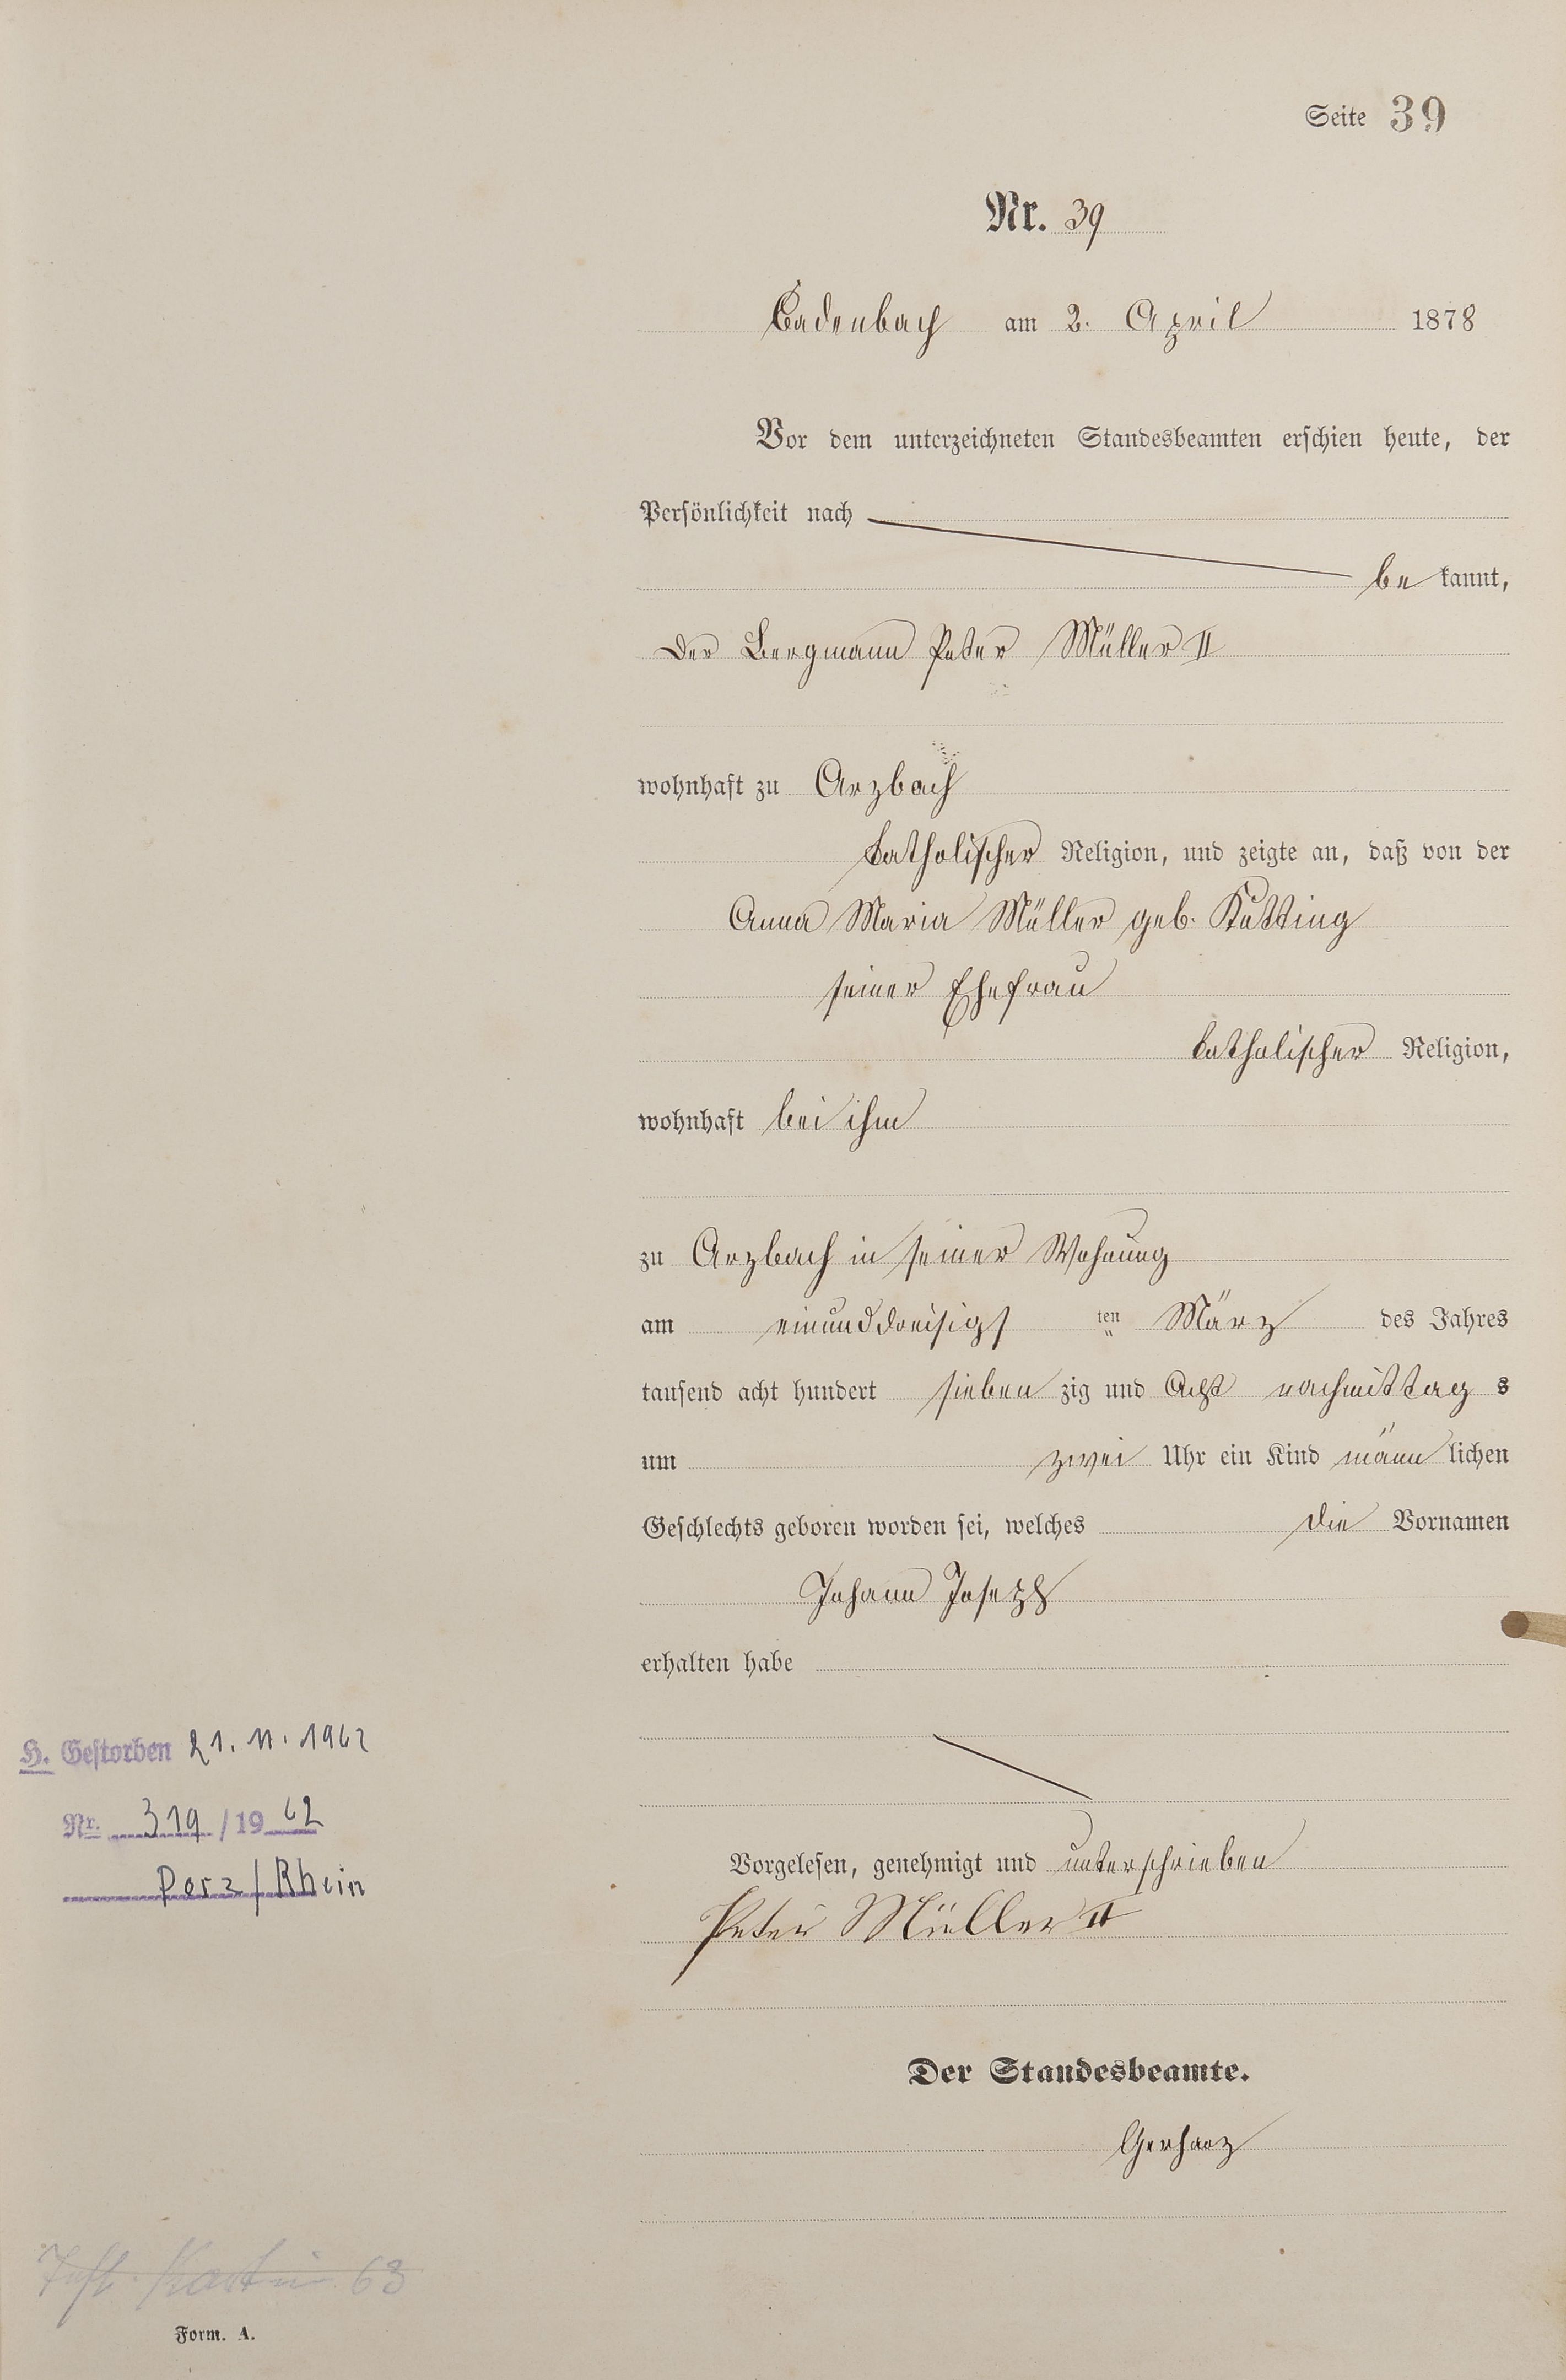 Seite 39
Nr. 39
Cadenbach am 2. April 1878
Vor dem unterzeichneten Standesbeamten erschien heute, der
Persönlichkeit nach
be kannt,
der Bergmann Peter Müller II
wohnhaft zu Arzbach
katholischer Religion, und zeigte an, daß von der
Anna Maria Müller geb. Kutting
seiner Ehefrau
katholischer Religion,
wohnhaft bei ihm
zu Arzbach in seiner Wohnung
am einunddreisigs ten März des Jahres
tausend acht hundert sieben zig und Acht nachmittag s
um zwei Uhr ein Kind männ lichen
Geschlechts geboren worden sei, welches die Vornamen
Johann Joseph
erhalten habe
H. Gestorben 21. 11. 1962
Nr. 319 / 19 62
Porz / Rhein
Vorgelesen, genehmigt und unterschrieben
Peter Müller II
Der Standesbeamte.
Gerharz
63
Form. A.